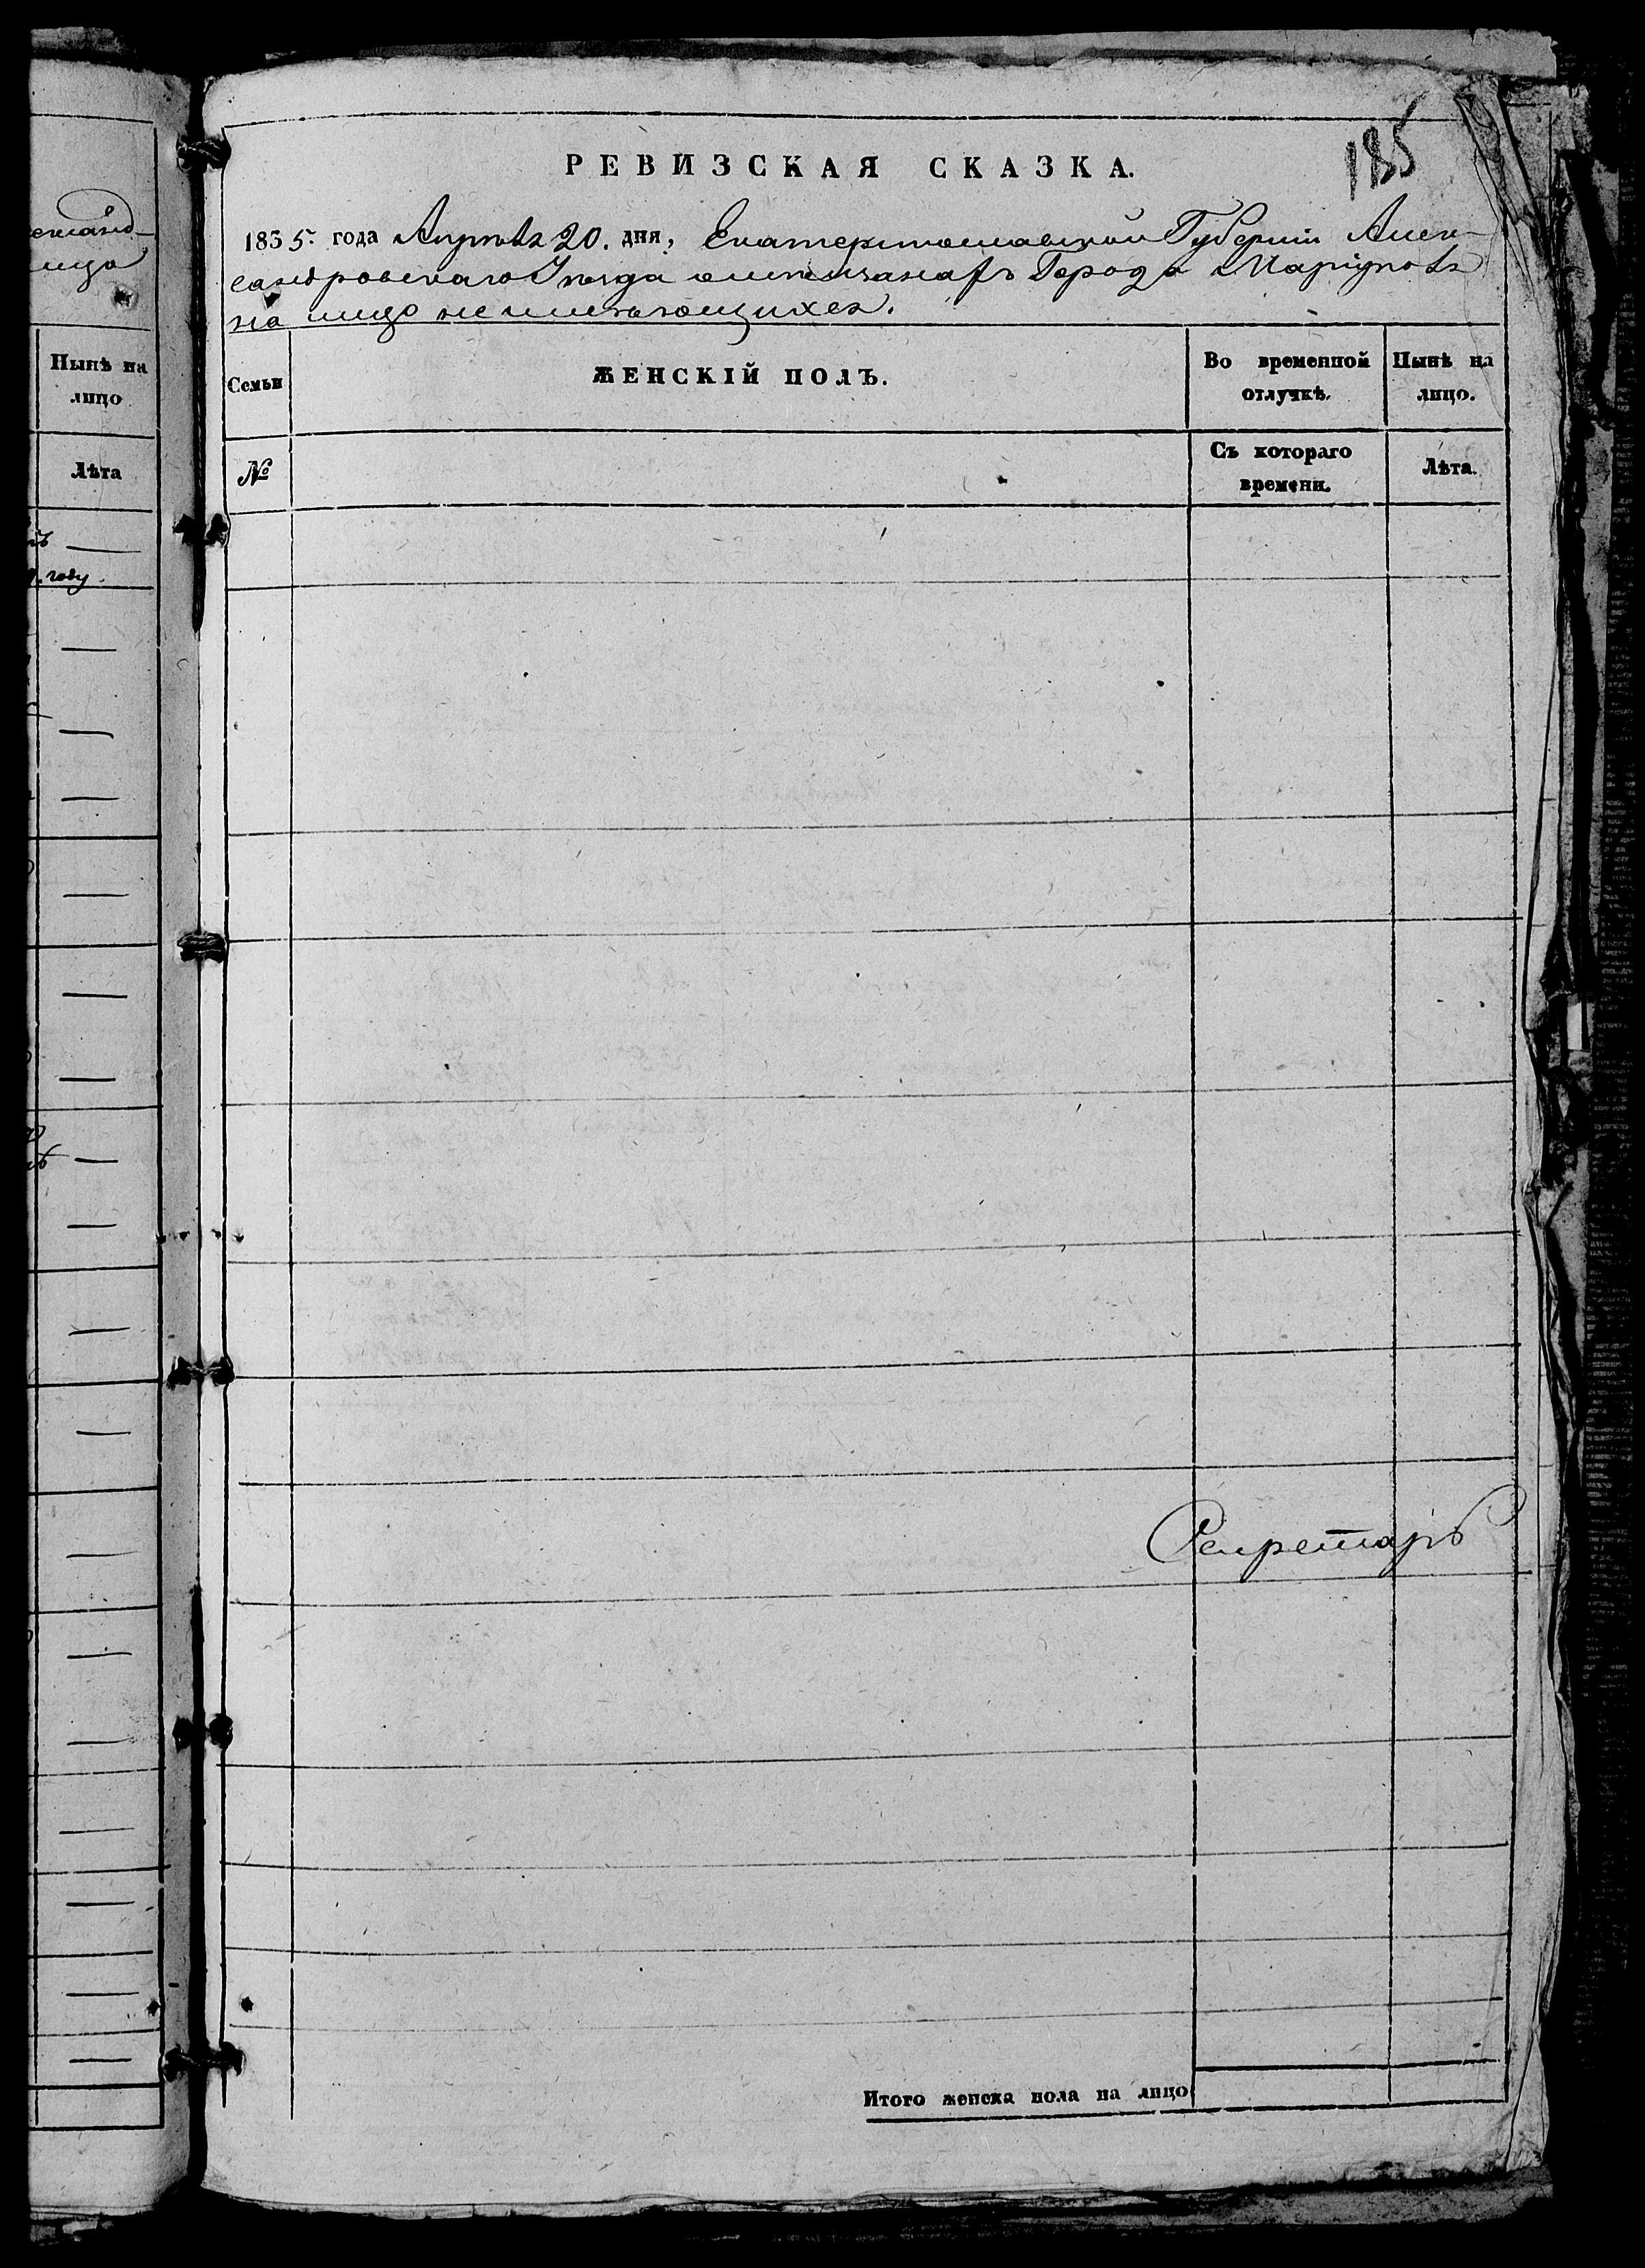 ександ-
лицо
Нынѣ на
лицо
Лѣта
году
185
РЕВИЗСКАЯ СКАЗКА.
1835. года Апрѣля 20. дня, Екатеринославской Губерніи Алек-
сандровскаго Уѣзда Города Маріуполя
на лицо не имѣющихся.
Семьи
ЖЕНСКІЙ ПОЛЪ.
Во временной
отлучкѣ.
Нынѣ на
лицо.
№
Съ котораго
времени.
Лѣта.
Секретарь
Итого женска пола на лицо